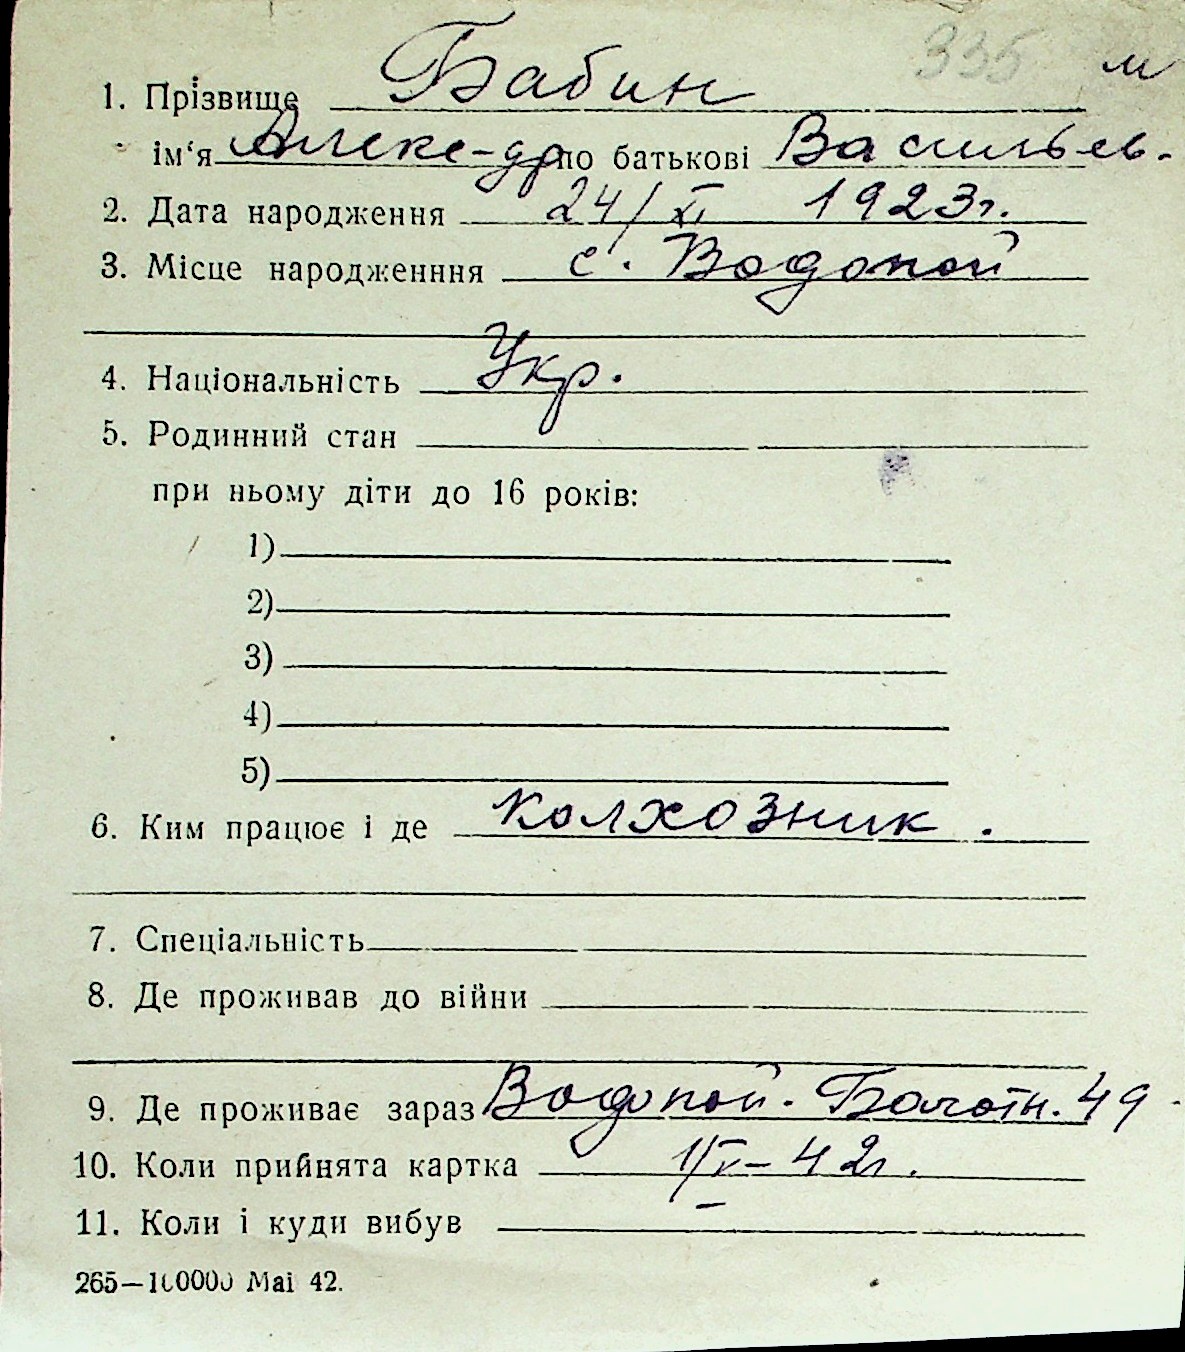 335 м
1. Прізвище Бабин
ім‘я Алекс-др по батькові Васильев.
2. Дата народження 24/XI 1923г.
3. Місце народженння с. Водопой
4. Національність Укр.
5. Родинний стан
при ньому діти до 16 років:
1)
2)
3)
4)
5)
6. Ким працює і де колхозник.
7. Спеціальність
8. Де проживав до війни
9. Де проживає зараз Водопой. Болотн. 49
10. Коли прийнята картка 1/V-42г.
11. Коли і куди вибув
265—100000 Маі 42.